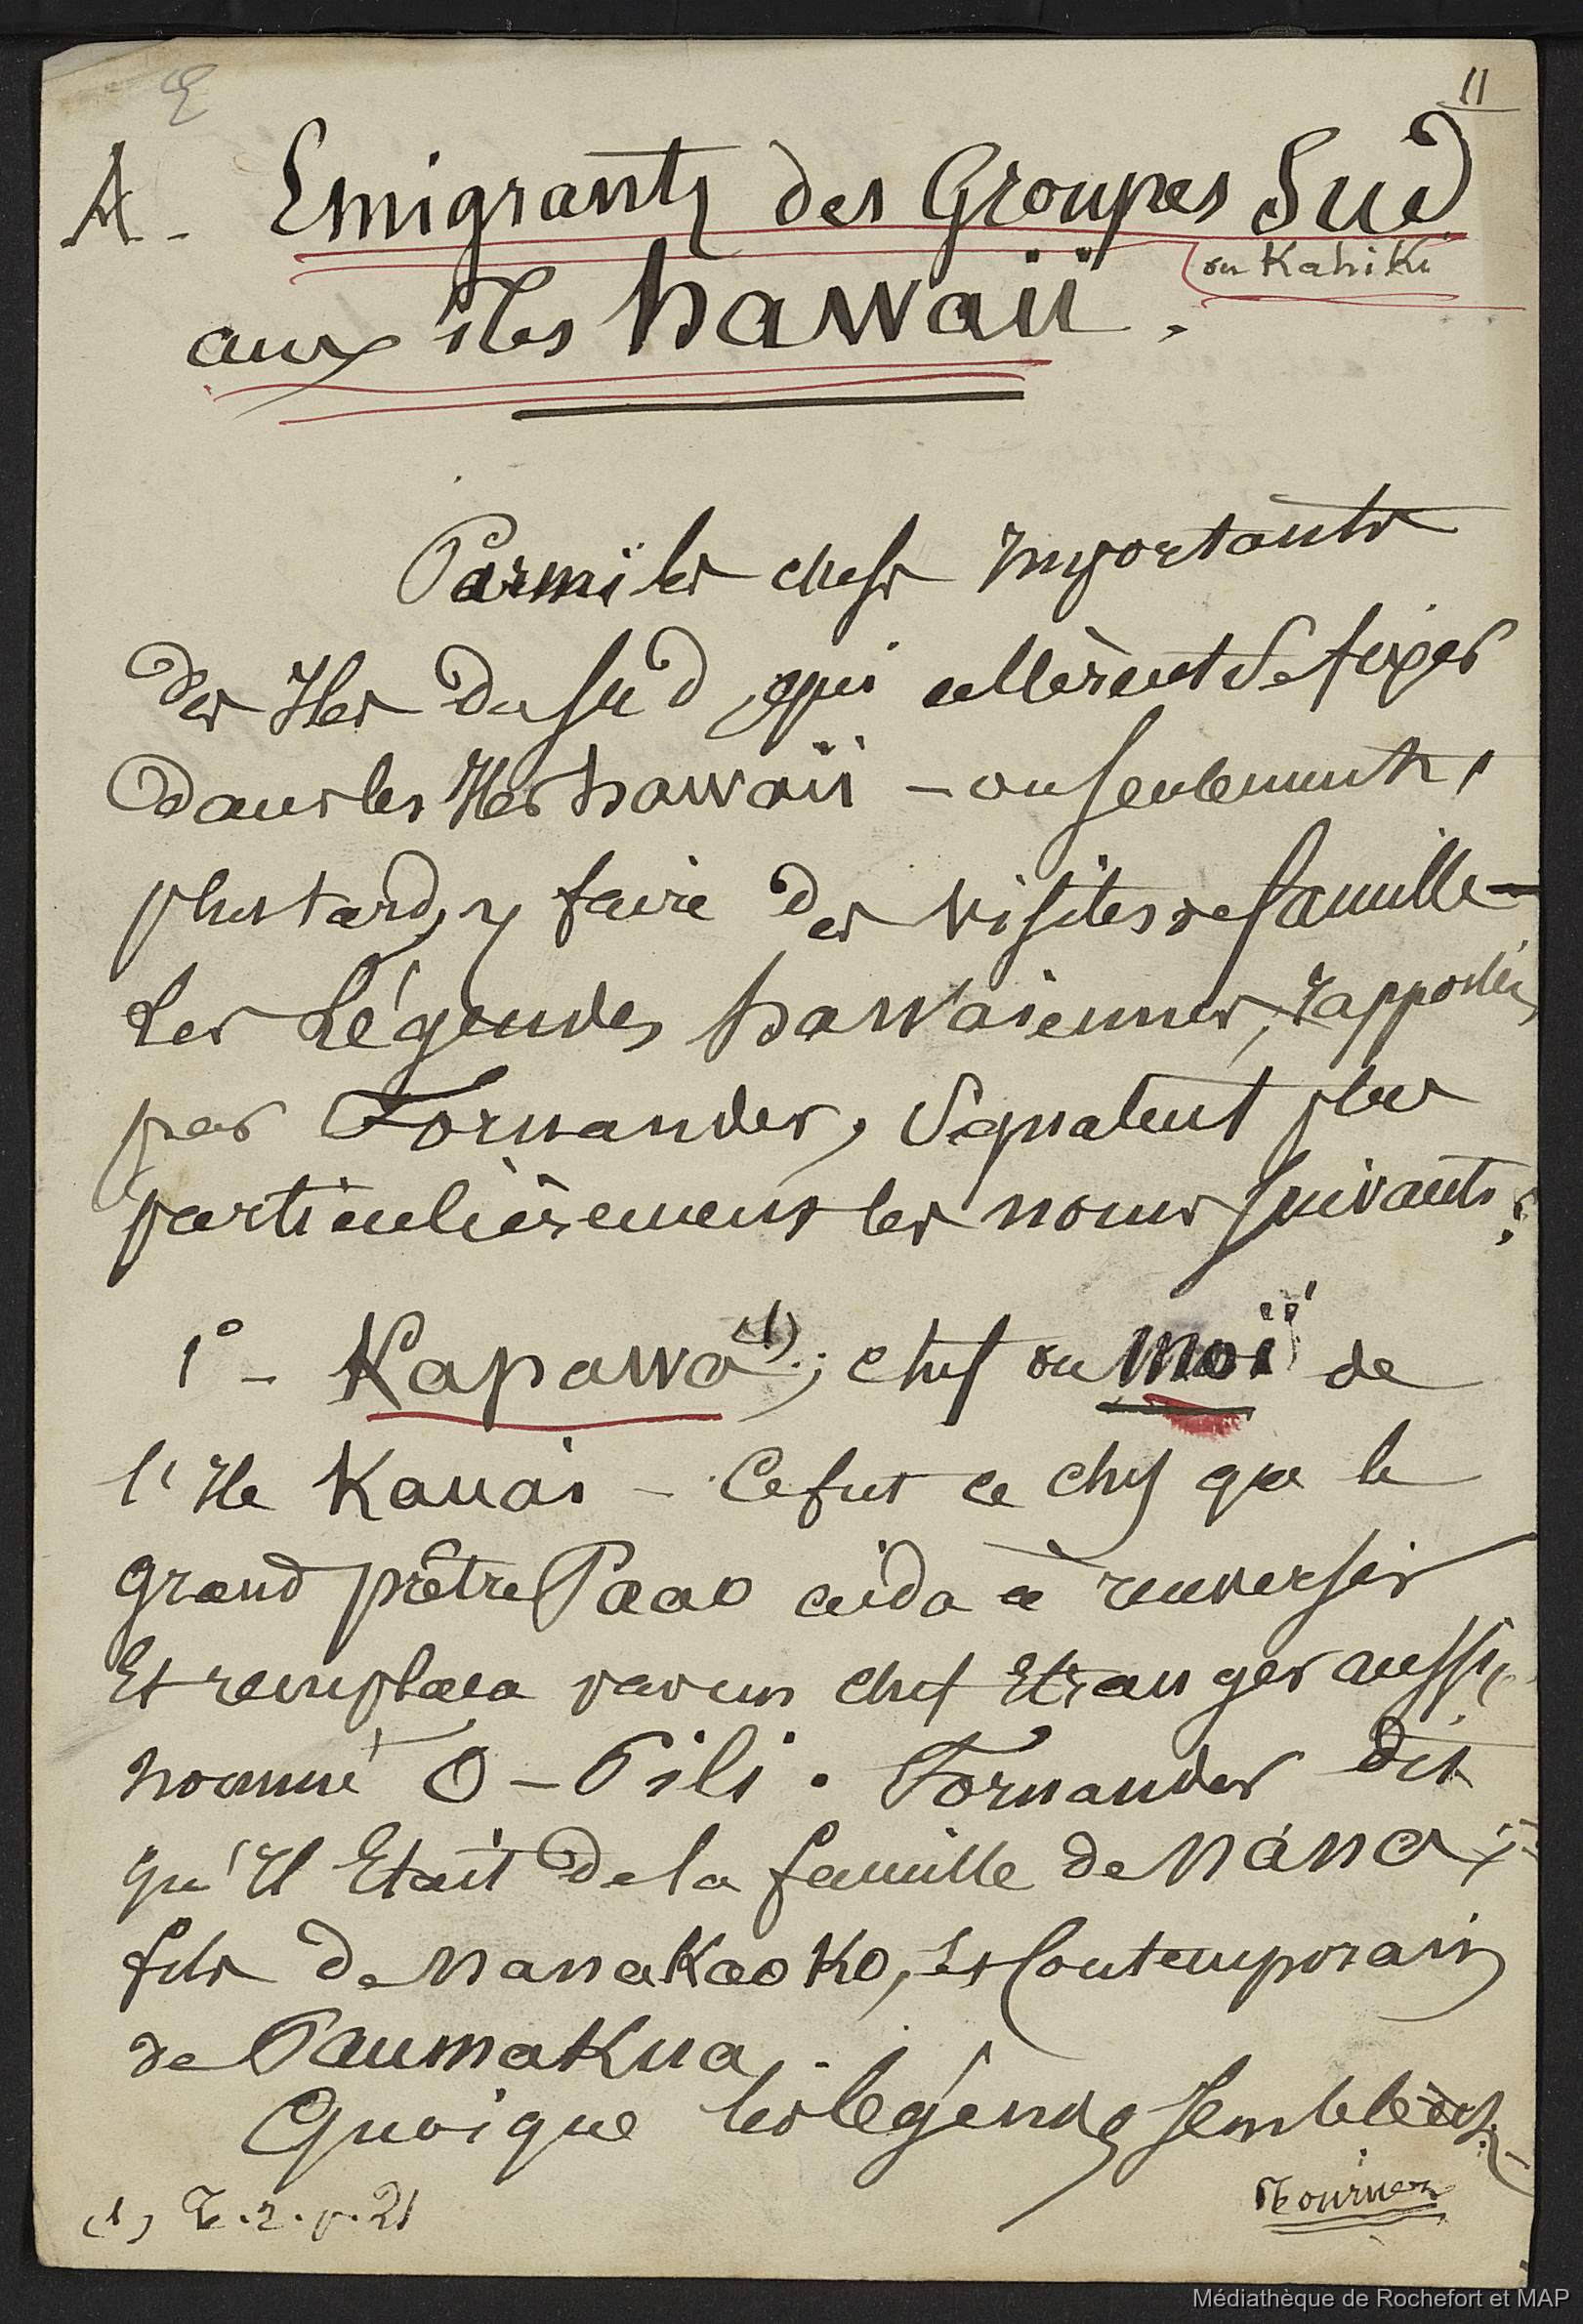 E
11
A - Emigrants des Groupes Sud
ou Kahiki
aux îles hawaiï.
Parmi les chefs Importants
des Iles du Sud, qui allèrent se fixer
dans les Iles hawaiï - ou seulement,
plus tard, y faire des visites de famille -
Les Légendes hawaïennes, rapportées
par Fornander, signalent plus
particulièrement les noms suivants :
1° - Kapawa (1); chef ou moï de
l'Ile Kauai - Ce fut ce chef que le
grand prêtre Paao aida à renverser
Et remplaca par un chef Etranger aussi,
nommé O-Pili. Fornander dit
qu'Il Etait de la famille de Nana,
fils de Nanakaoko, Et Contemporain
de Paumakua.
Quoique les légendes semblent
(1) T. 2. p. 21
Tournez
Médiathèque de Rochefort et MAP